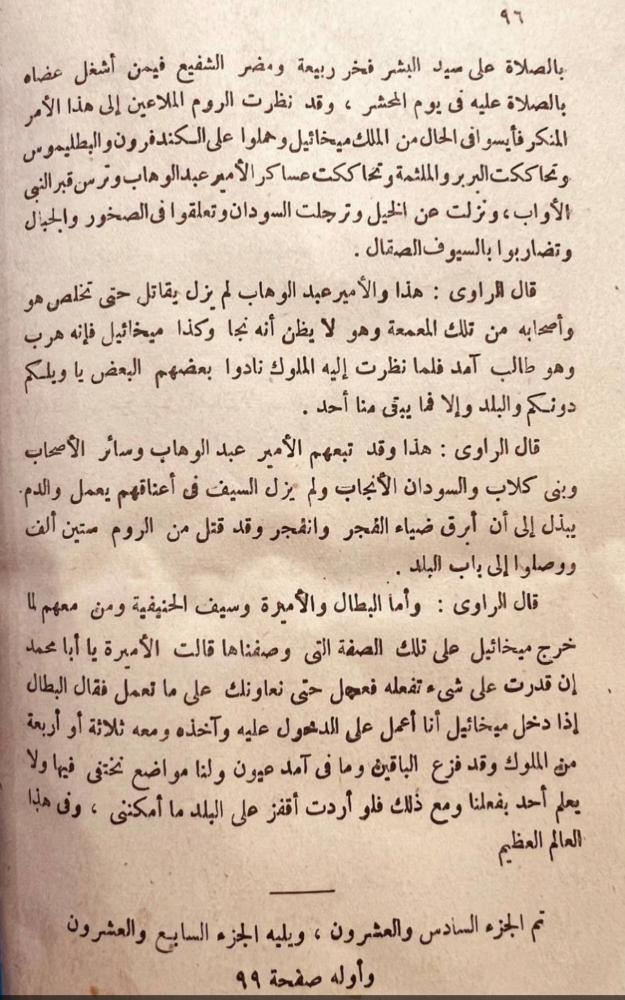 ٩٦
بالصلاة على سيد البشر فخر ربيعة ومضر الشفيع فيمن أشغل عضاه
بالصلاة عليه فى يوم المحشر ، وقد نظرت الروم الملاعين إلى هذا الأمر
المنكر فأيسوا فى الحال من الملك ميخائيل وحملوا على الكندفرون والبطليموس
وتحاككت البربر والملثمة وتحاككت عساكر الأمير عبد الوهاب وترس قبر النبى
الأواب ، ونزلت عن الخيل وترجلت السودان وتعلقوا فى الصخور والجبال
وتضاربوا بالسيوف الصقال .
قال الراوى : هذا والأمير عبد الوهاب لم يزل يقاتل حتى تخلص هو
وأصحابه من تلك المعمعة وهو لا يظن أنه نجا وكذا ميخائيل فإنه هرب
وهو طالب آمد فلما نظرت إليه الملوك نادوا بعضهم البعض يا ويلكم
دونكم والبلد وإلا فما يبقى منا أحد .
قال الراوى : هذا وقد تبعهم الأمير عبد الوهاب وسائر الأصحاب
وبنى كلاب والسودان الأنجاب ولم يزل السيف فى أعناقهم يعمل والدم
يبذل إلى أن أبرق ضياء الفجر وانفجر وقد قتل من الروم ستين ألف
ووصلوا إلى باب البلد .
قال الراوى : وأما البطال والأميرة وسيف الحنيفية ومن معهم لما
خرج ميخائيل على تلك الصفة التى وصفناها قالت الأميرة يا أبا محمد
إن قدرت على شىء تفعله فعجل حتى نعاونك على ما تعمل فقال البطال
إذا دخل ميخائيل أنا أعمل على الدخول عليه وآخذه ومعه ثلاثة أو أربعة
من الملوك وقد فزع الباقين وما فى آمد عيون ولنا مواضع نختفى فيها ولا
يعلم أحد بفعلنا ومع ذلك فلو أردت أقفز على البلد ما أمكننى ، وفى هذا
العالم العظيم
تم الجزء السادس والعشرون ، ويليه الجزء السابع والعشرون
وأوله صفحة ٩٩